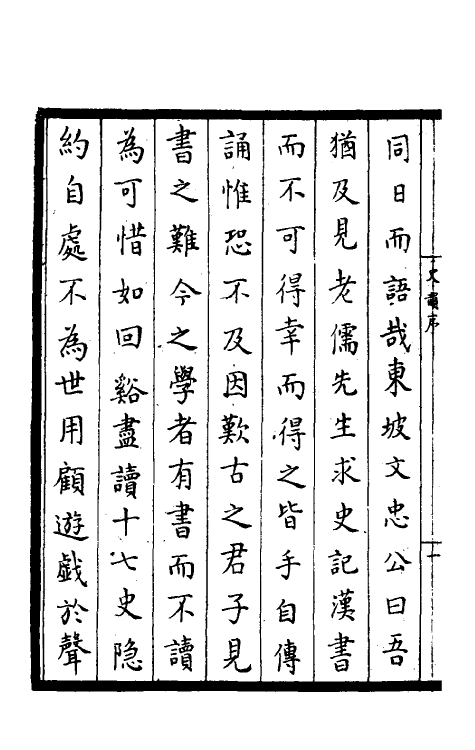 史韻序
二
同日而語哉東坡文忠公曰吾
猶及見老儒先生求史記漢書
而不可得幸而得之皆手自傳
誦惟恐不及因歎古之君子見
書之難今之學者有書而不讀
為可惜如回谿盡讀十七史隐
約自處不為世用顧遊戲於聲